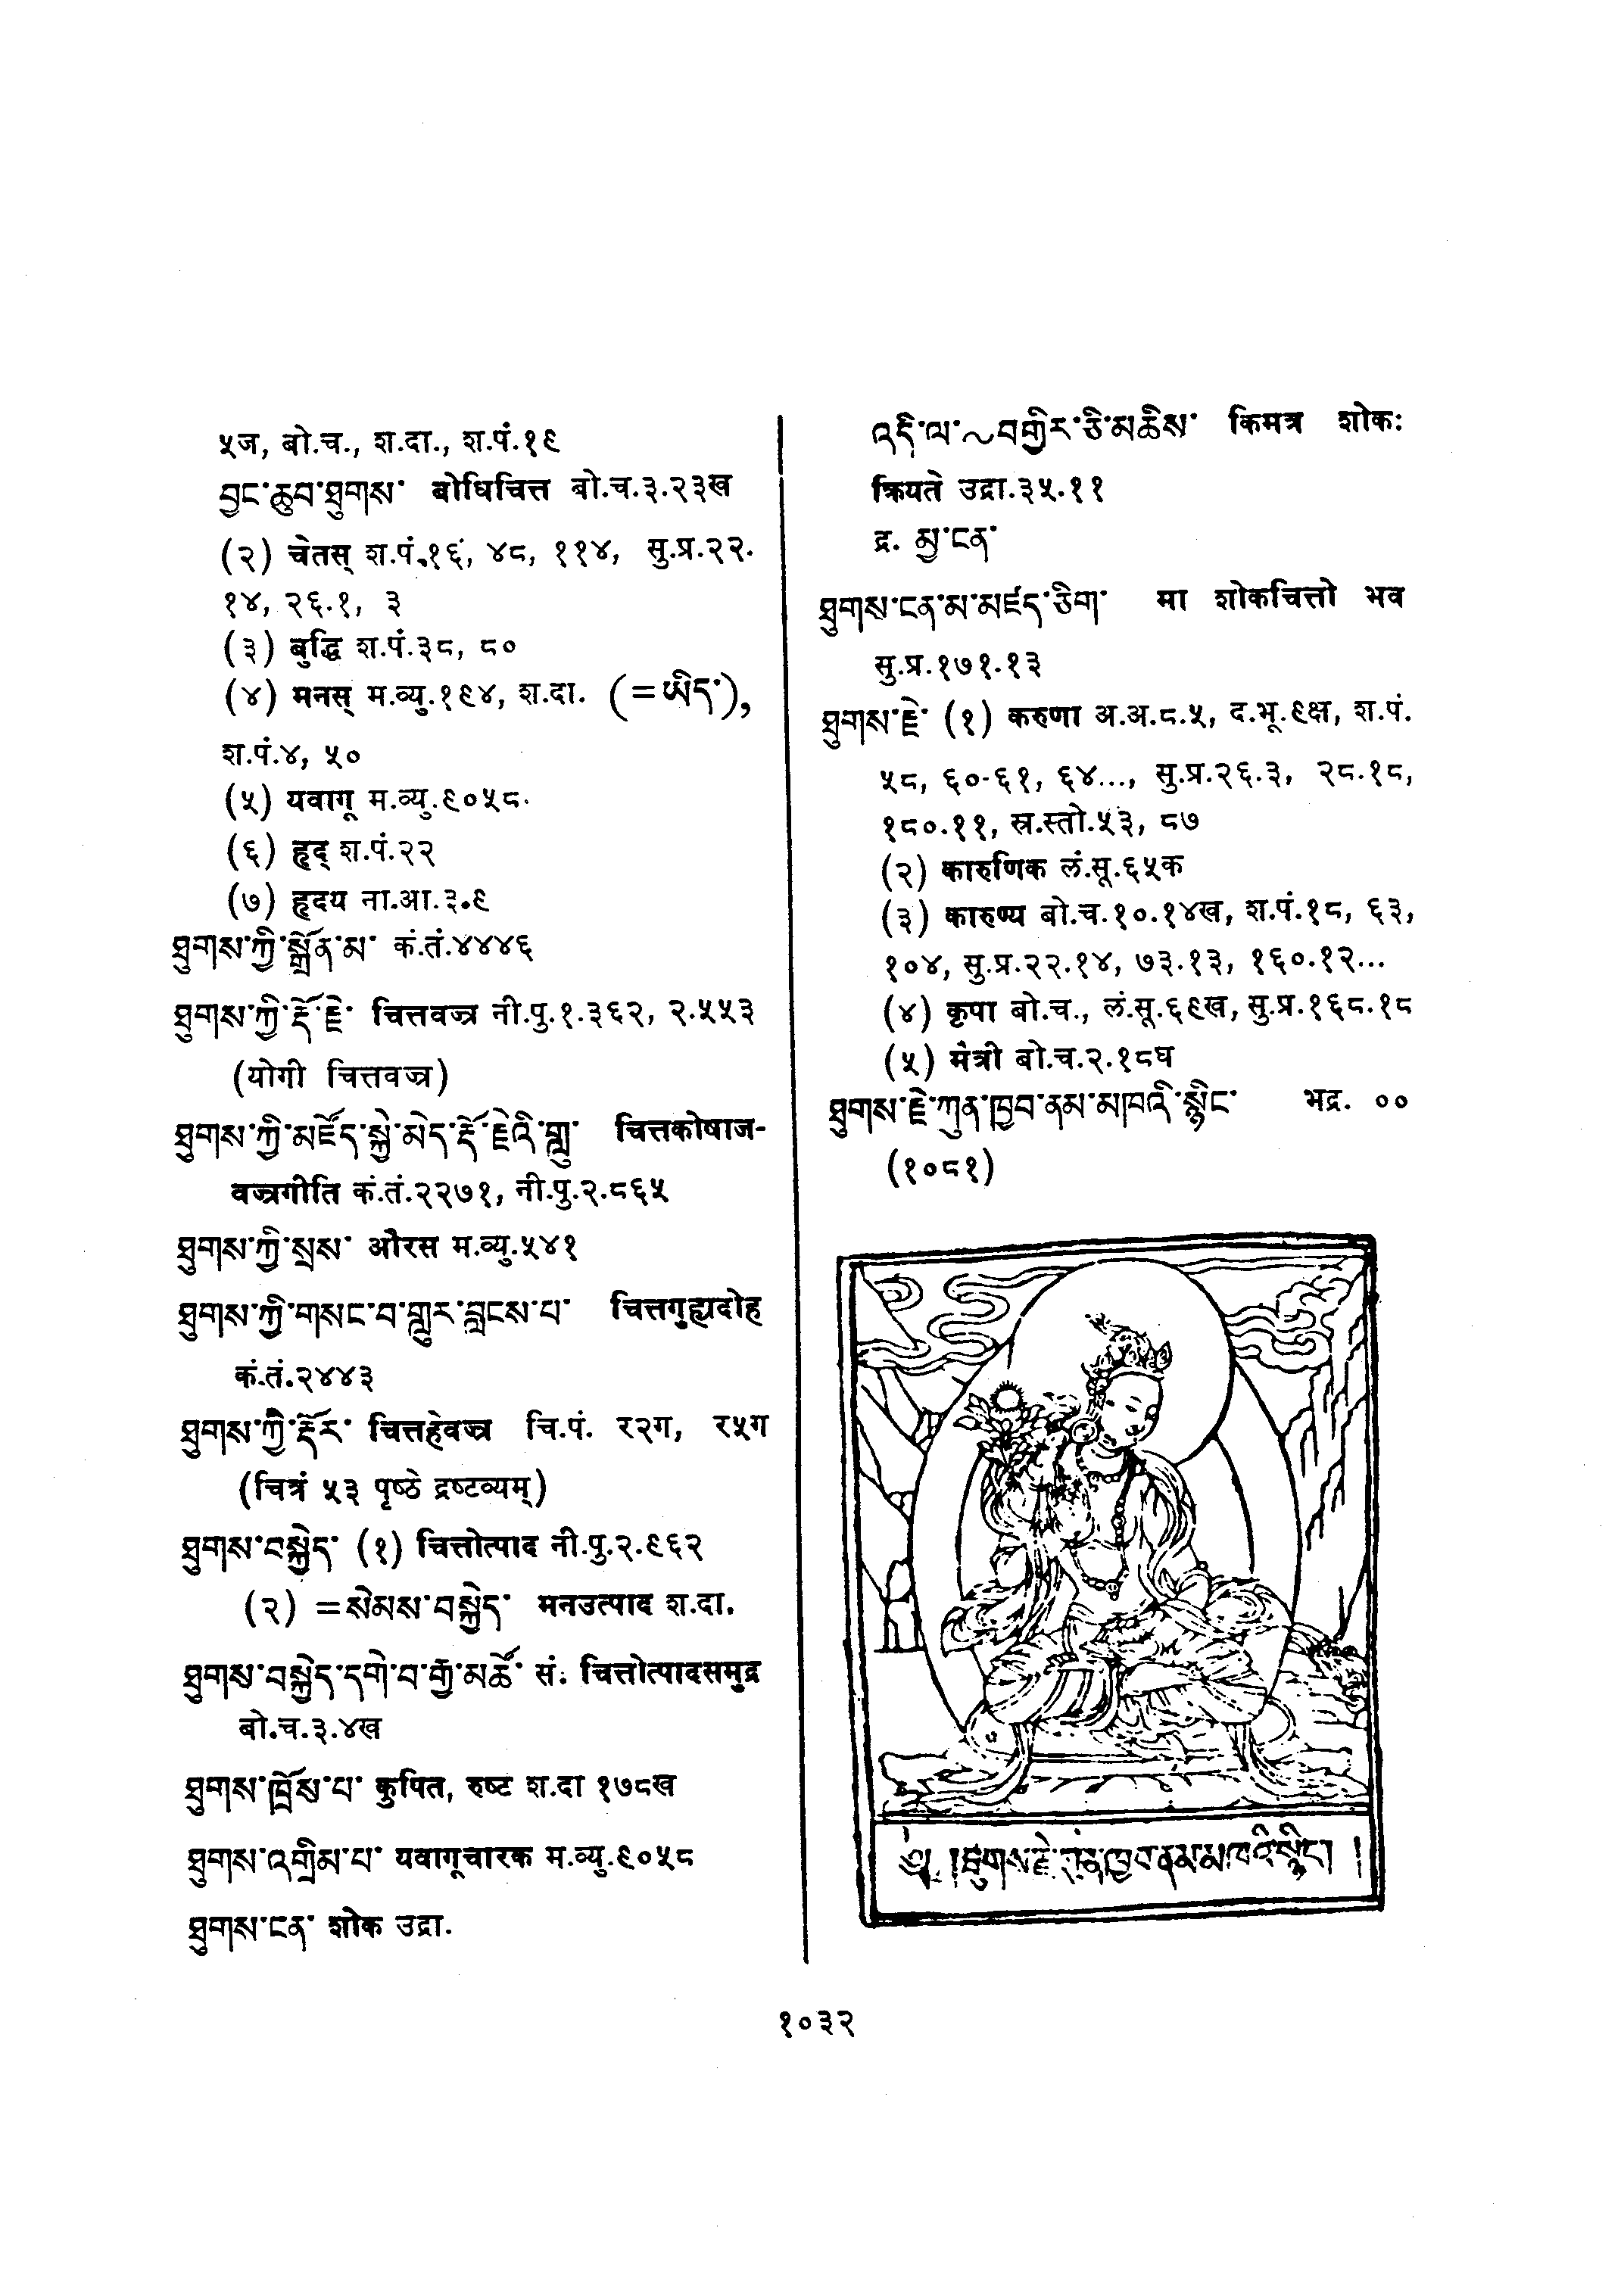 ५ज, बो.च., श.दा., श.पं.१९
བྱང་ཆུབ་ཐུགས་ बोधिचित्त बो.च.३.२३ख
(२) चेतस् श.पं.१६, ४८, ११४, सु.प्र.२२.
१४, २६.१, ३
(३) बुद्धि श.पं.३८, ८०
(४) मनस् म.व्यु.१९४, श.दा. (=ཡིད་),
श.पं.४, ५०
(५) यवागू म.व्यु.९०५८.
(६) हृद् श.पं.२२
(७) हृदय ना.आ.३.९
ཐུགས་ཀྱི་སྒྲོན་མ་ कं.तं.४४४६
ཐུགས་ཀྱི་རྡོ་རྗེ་ चित्तवज्र नी.पु.१.३६२, २.५५३
(योगी चित्तवज्र)
ཐུགས་ཀྱི་མཛོད་སྐྱེ་མེད་རྡོ་རྗེའི་གླུ་ चित्तकोषाज-
वज्रगीति कं.तं.२२७१, नी.पु.२.८६५
ཐུགས་ཀྱི་སྲས་ औरस म.व्यु.५४१
ཐུགས་ཀྱི་གསང་བ་གླུར་བླངས་པ་ चित्तगुह्यदोह
कं.तं.२४४३
ཐུགས་ཀྱི་རྡོར་ चित्तहेवज्र चि.पं. र२ग, र५ग
(चित्रं ५३ पृष्ठे द्रष्टव्यम्)
ཐུགས་བསྐྱེད་ (१) चित्तोत्पाद नी.पु.२.९६२
(२) =སེམས་བསྐྱེད་ मनउत्पाद श.दा.
ཐུགས་བསྐྱེད་དགེ་བ་རྒྱ་མཚོ་ सं. चित्तोत्पादसमुद्र
बो.च.३.४ख
ཐུགས་ཁྲོས་པ་ कुपित, रुष्ट श.दा १७८ख
ཐུགས་འགྲིམ་པ་ यवागूचारक म.व्यु.९०५८
ཐུགས་ངན་ शोक उद्रा.
འདི་ལ་~བགྱིར་ཅི་མཆིས་ किमत्र शोकः
क्रियते उद्रा.३५.११
द्र. མྱ་ངན་
ཐུགས་ངན་མ་མཛད་ཅིག་ मा शोकचित्तो भव
सु.प्र.१७१.१३
ཐུགས་རྗེ་ (१) करुणा अ.अ.८.५, द.भू.९क्ष, श.पं.
५८, ६०-६१, ६४..., सु.प्र.२६.३, २८.१८,
१८०.११, स्र.स्तो.५३, ८७
(२) कारुणिक लं.सू.६५क
(३) कारुण्य बो.च.१०.१४ख, श.पं.१८, ६३,
१०४, सु.प्र.२२.१४, ७३.१३, १६०.१२...
(४) कृपा बो.च., लं.सू.६९ख, सु.प्र.१६८.१८
(५) मैत्री बो.च.२.१८घ
ཐུགས་རྗེ་ཀུན་ཁྱབ་ནམ་མཁའི་སྙིང་ भद्र. ००
(१०८१)
༄། །ཐུགས་རྗེ་ཀུན་ཁྱབ་ནམ་མཁའི་སྙིང། །
१०३२